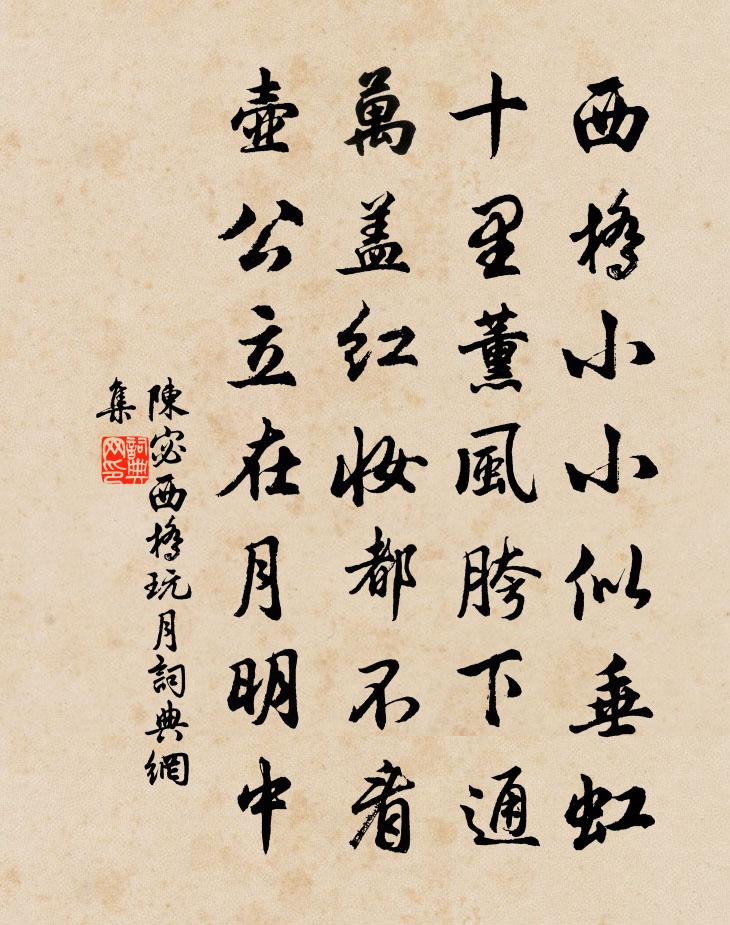 西橋小小似垂虹
十里薰風胯下通
萬盖红妝都不看
壺公立在月明中
陳宓西橋玩月詞典網
集
詞典
网印